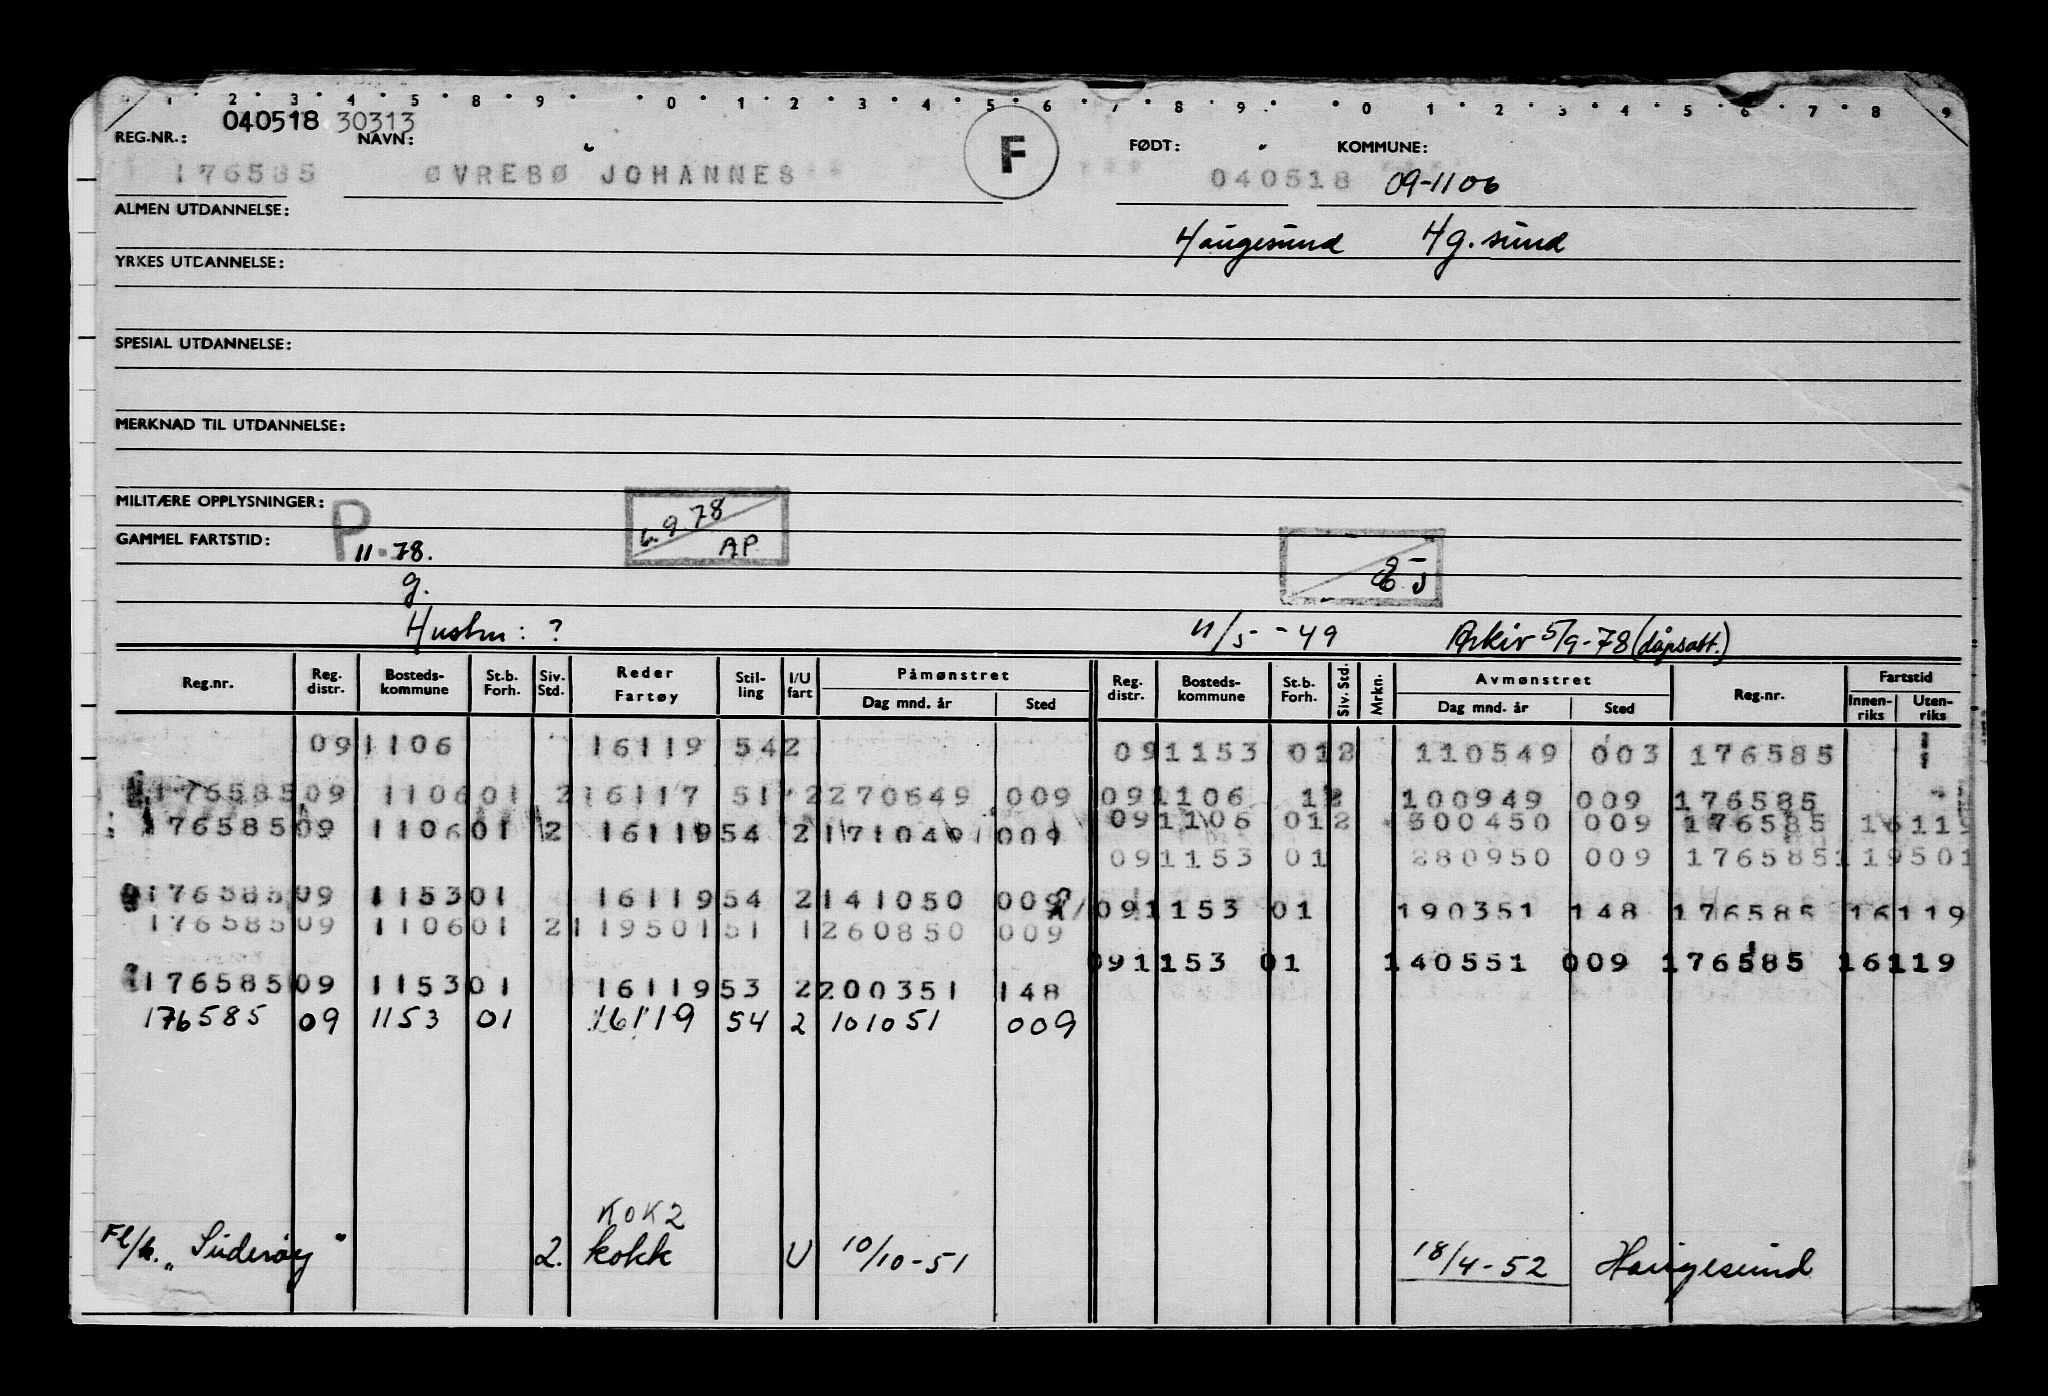 1 2 3 4 5 8 9 0 1 2 3 4 5 6 7 8 9 0 1 2 3 4 5 6 7 8 9
040518 30313
REG.NR.: NAVN: F FØDT: KOMMUNE:
176585 ØVREBØ JOHANNES 040518 09-1106
ALMEN UTDANNELSE: Haugesund Hg.sund
YRKES UTDANNELSE:
SPESIAL UTDANNELSE:
MERKNAD TIL UTDANNELSE:
MILITÆRE OPPLYSNINGER: P 6.9.78
GAMMEL FARTSTID: 11-78. AP
g.
Hustru: ? 11/5-49 Arkiv 5/9-78 (dåpsatt.)
Reg.nr. Reg. distr. Bosteds-kommune St.b. Forh. Siv. Std. Reder Fartøy Stil-ling I/U fart Påmønstret Dag mnd. år Sted Reg. distr. Bosteds-kommune St.b. Forh. Siv. Std. Mrkn. Avmønstret Dag mnd. år Sted Reg.nr. Fartstid Innen-riks Uten-riks
09 1106 16119 54 2 09 1153 01 2 110549 003 176585
176585 09 1106 01 2 16117 51 2 270649 009 09 1106 1 2 100949 009 176585
176585 09 1106 01 2 16119 54 2 171049 009 09 1106 01 2 300450 009 176585 16119
09 1153 01 280950 009 176585 119501
176585 09 1153 01 16119 54 2 141050 009 09 1153 01 190351 148 176585 16119
176585 09 1106 01 2 119501 51 1 260850 009
09 1153 01 140551 009 176585 16119
176585 09 1153 01 16119 53 2 200351 148
176585 09 1153 01 16119 54 2 101051 009
KOK2
Fl/k. „Suderøy" 2. kokk U 10/10-51 18/4-52 Haugesund